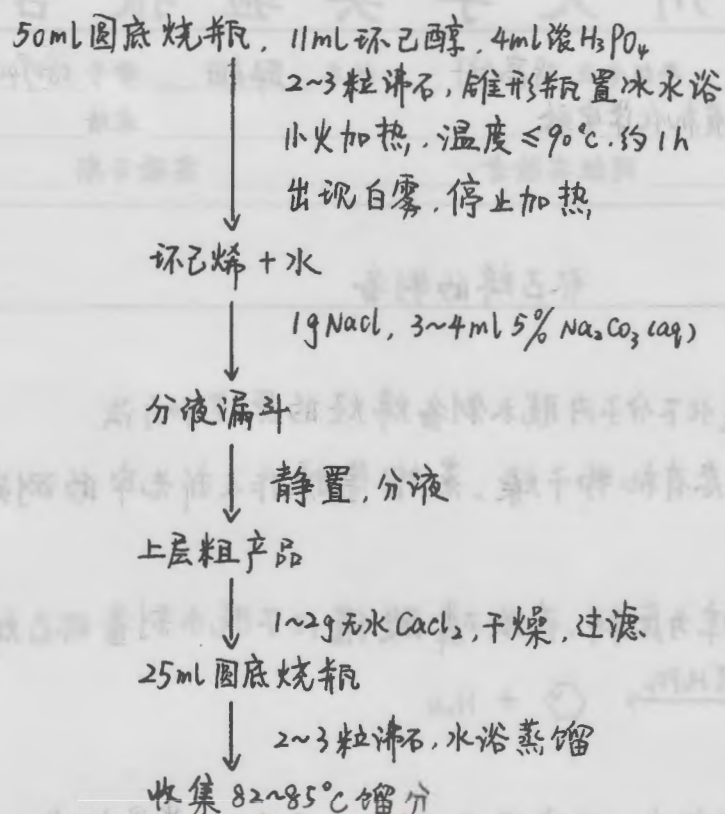 50ml圆底烧瓶, 11ml环己醇, 4ml浓H₃PO₄
2~3粒沸石, 锥形瓶置冰水浴
小火加热, 温度≤90℃.约1h
出现白雾, 停止加热
环己烯+水
1gNacl, 3~4ml 5% Na₂CO₃(aq)
分液漏斗
静置,分液
上层粗产品
1~2g无水CaCl₂,干燥,过滤.
25ml圆底烧瓶
2~3粒沸石,水浴蒸馏
收集82~85℃馏分